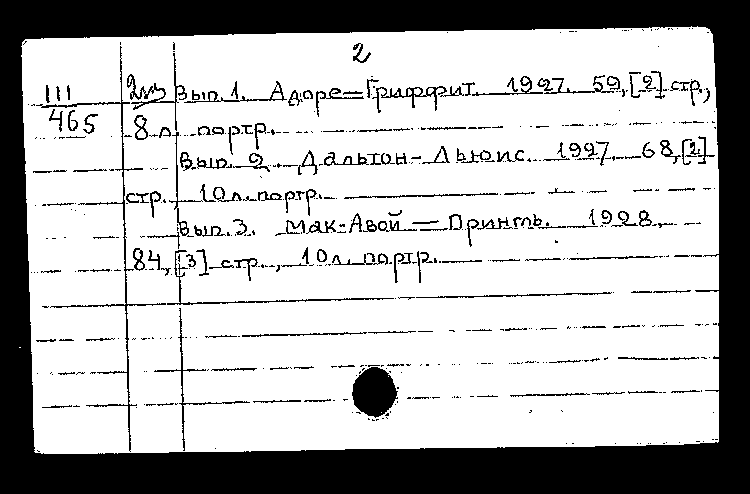 2
III 2 из Вып. 1. Адоре—Гриффит. 1927. 59, [2] стр.,
465 8 л. портр.
Вып. 2. Дальтон-Льюис. 1927. 68, [2]
стр., 10 л. портр.
Вып. 3. Мак-Авой — Прингль. 1928.
84, [3] стр., 10 л. портр.